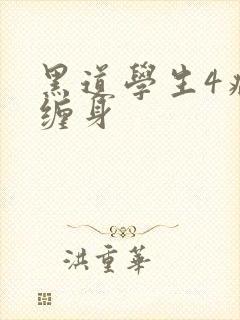 黑道學生4
缠身
洪重華